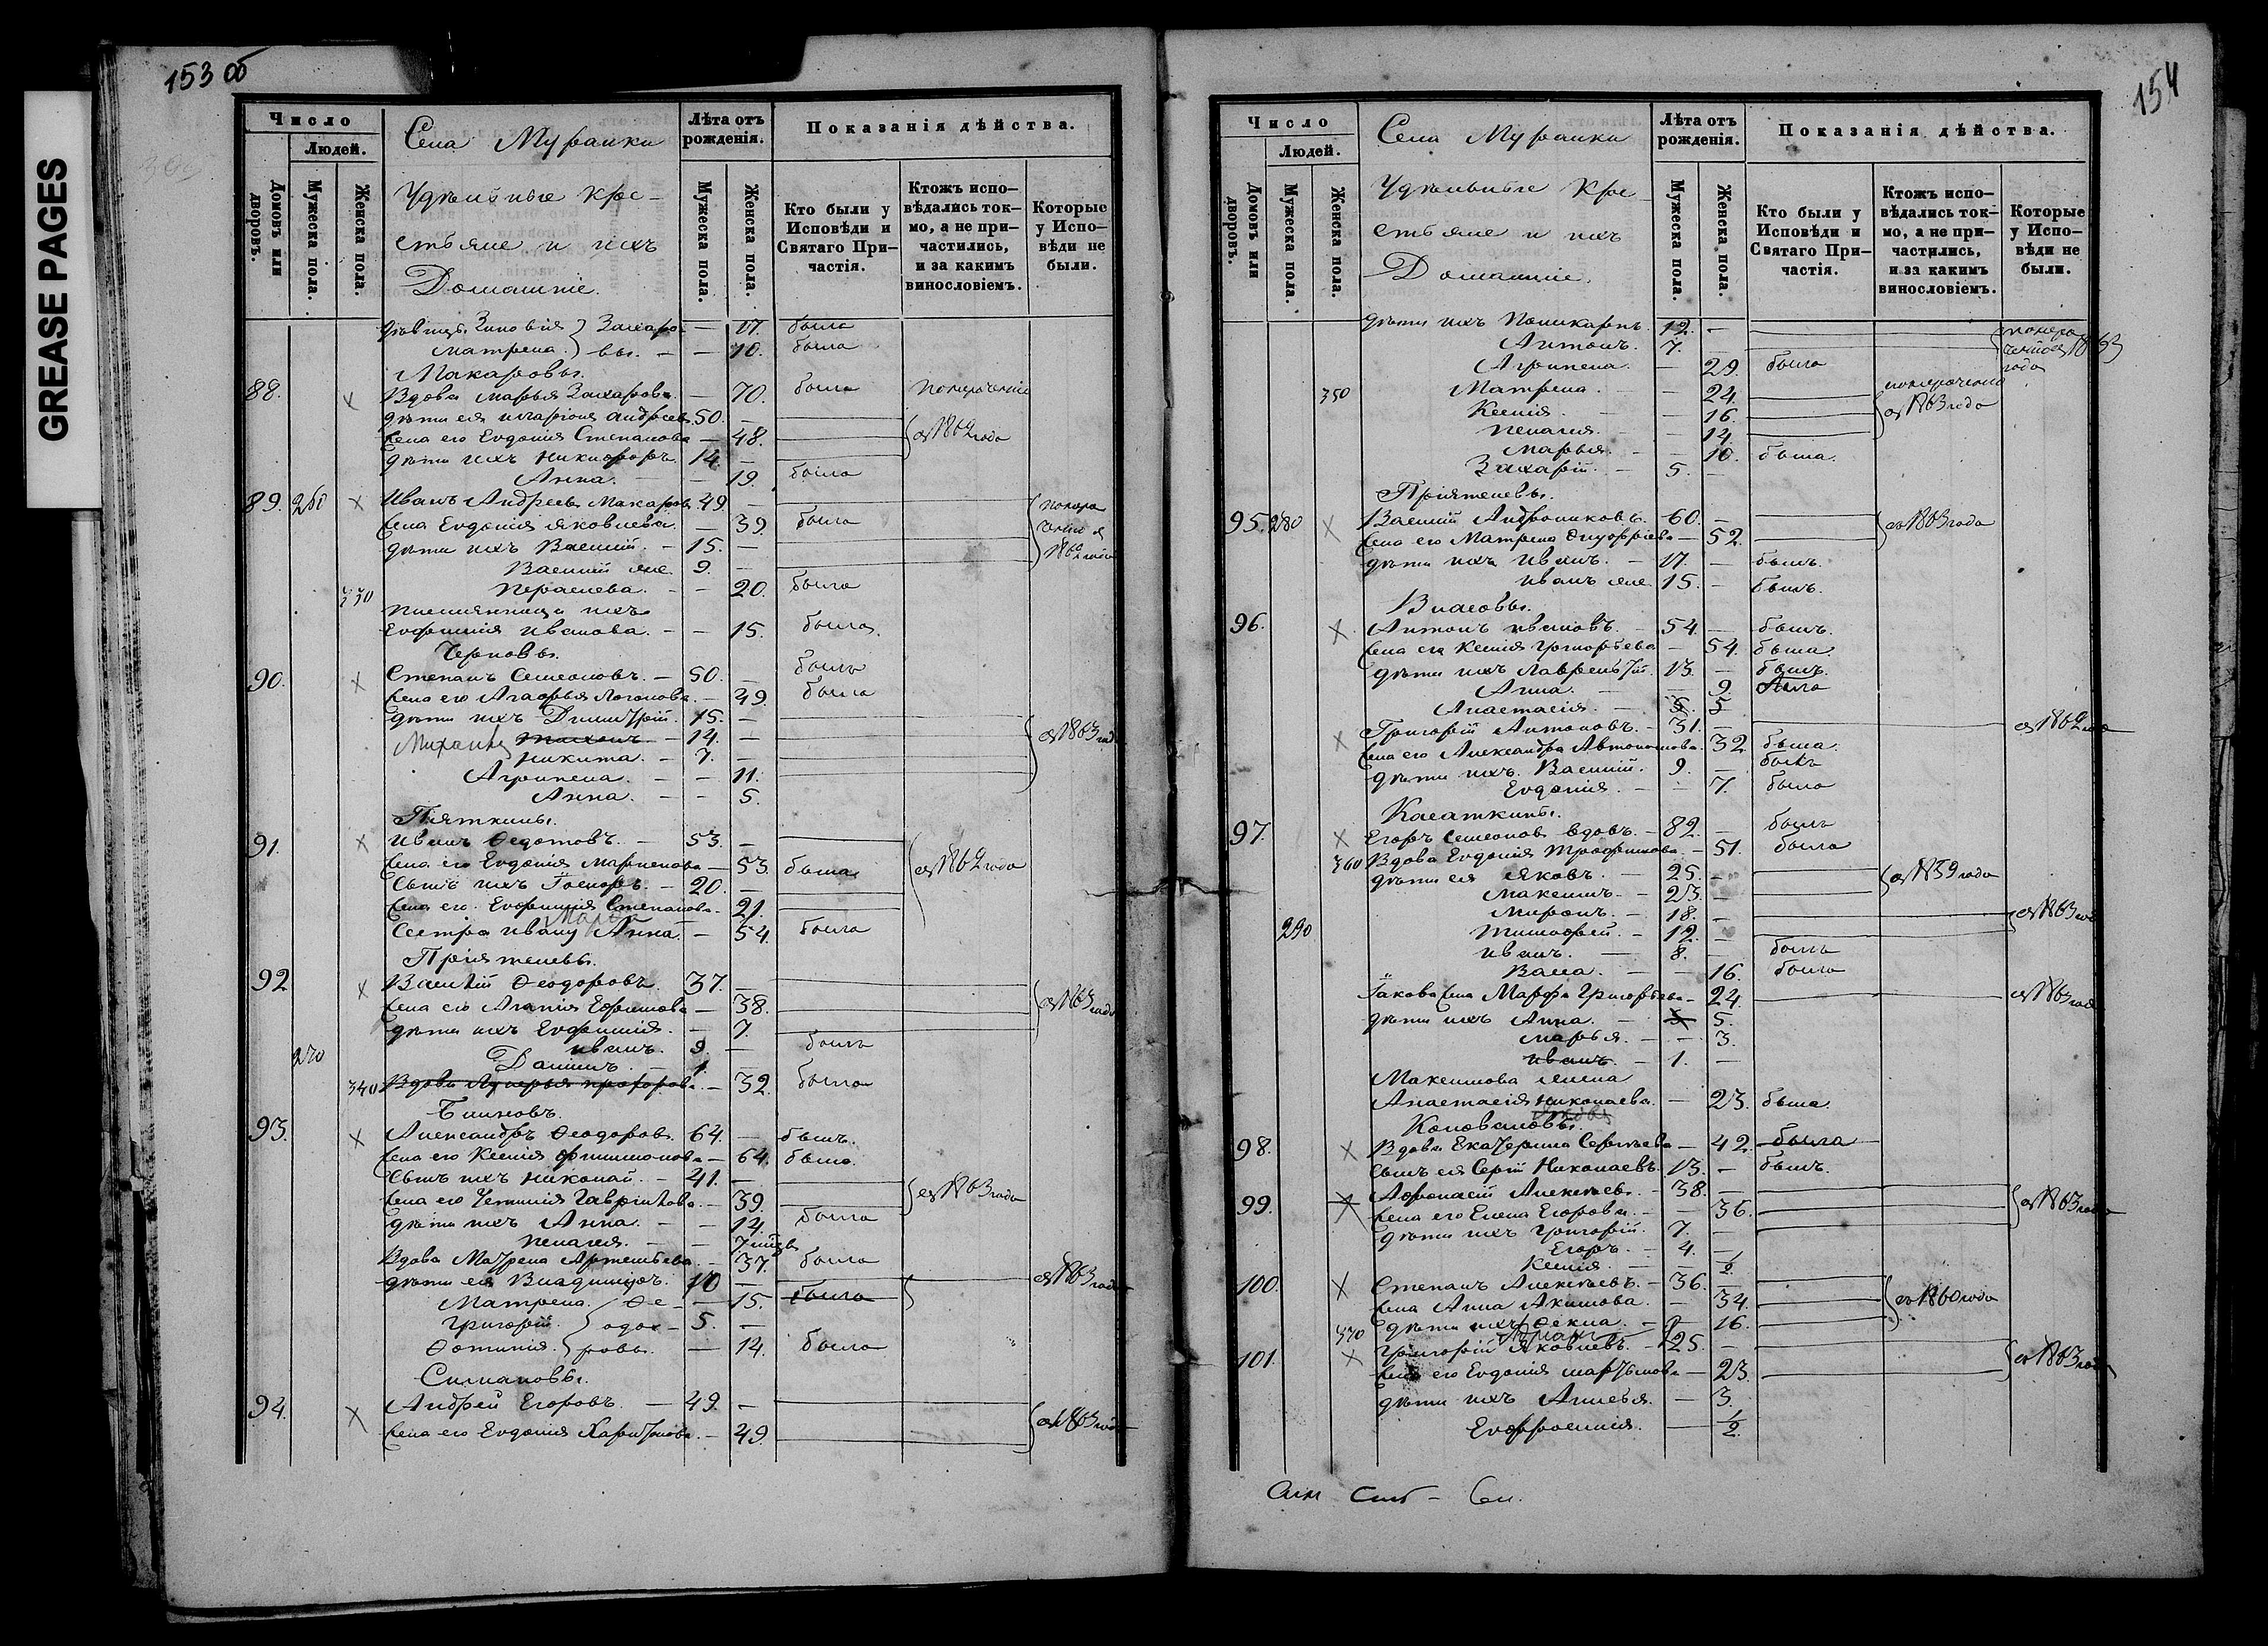 GREASE PAGES
153 об
Число
Людей.
Домовъ или дворовъ.
Мужеска пола.
Женска пола.
Села Муранки
Удѣльные крестьяне и ихъ Домашніе.
Лѣта отъ рожденія.
Мужеска пола.
Женска пола.
Показанія дѣйства.
Кто были у Исповѣди и Святаго Причастія.
Ктожъ исповѣдались токмо, а не причастились, и за какимъ винословіемъ.
Которые у Исповѣди не были.
Зиновія } Захаро- — 17. была
Матрена. } вы. — — 10. была
Макаровы.
88. Вдова Марья Захарова. — 70. была
дѣти ея Иларіонъ Андреевъ 50. —
жена его Евдокія Степанова — 48. съ 1862 года
дѣти ихъ Никифоръ. 14. —
Анна. — — 19. была
89. Иванъ Андреевъ Макаровъ 49. —
жена Евдокія Яковлева. — 39. была
дѣти ихъ Василій. — 15. — 1862 года
Василій же 9. —
Параскева. — — 20. была
племянница ихъ
Евфимія Иванова. — — 15. была
Черновы.
90. Степанъ Семеоновъ. — 50. — былъ
жена его Агафья Логинова. — 49. была
дѣти ихъ Димитрій. 15. —
Михаилъ 14. — съ 1863 года
Никита. — 7. —
Агрипена. — — 11.
Анна. — — 5.
Пяткины.
91. Иванъ Ѳедотовъ. — 53. —
жена его Евдокія — 53. была съ 1862 года
Сынъ ихъ — 20. —
жена его Евфимія Степанова. 21.
Сестра Ивану Анна. — 54. была
Пріятелевы.
92 Василій Ѳеодоровъ 37. —
жена его Агапія Ефимова — 38. съ 1863 года
дѣти ихъ Евфимія. — 7.
Иванъ. 9. — былъ
270 Даніилъ. — 1.
340 Вдова Лукерья Прохорова. — 32. была
Блиновъ.
93. Александръ Ѳеодоровъ. 64. — былъ.
жена его Ксенія Филимонова — 64. была
Сынъ ихъ Николай. — 41. —
жена его Гаврилова. — 39. съ 1863 года
дѣти ихъ Анна. — — 14. была
Пелагея. — — 7
Вдова Матрена Артемьева. — 37. была
дѣти ея Владиміръ. 10 — съ 1863 года
Матрена. } Ѳе- — 15. была
Григорій. } одо- 5. —
Фотинія. } ровы. — 14. была
Симановы.
94. Андрей Егоровъ. — 49. —
жена его Евдокія Харитонова. — 49. съ 1863 года
154
Число
Людей.
Домовъ или дворовъ.
Мужеска пола.
Женска пола.
Села Муранки
Удѣльные крестьяне и ихъ Домашніе.
Лѣта отъ рожденія.
Мужеска пола.
Женска пола.
Показанія дѣйства.
Кто были у Исповѣди и Святаго Причастія.
Ктожъ исповѣдались токмо, а не причастились, и за какимъ винословіемъ.
Которые у Исповѣди не были.
дѣти ихъ Поликарпъ. 12. —
Антонъ. 7. — 1863 года
Агрипена — 29. была
350 Матрена. — — 24.
Ксенія. — — 16. съ 1863 года
Пелагея. — — 14.
Марья. — — 10. была.
Захарій. — 5. —
Пріятелевы.
95. 280 Василій Андрониковъ. 60. — съ 1863 года
жена его Матрена Онуфріева — 52.
дѣти ихъ Иванъ. — 17. — былъ.
Иванъ же 15. — былъ.
Власовы.
96. Антонъ Ивановъ. — 54. — былъ.
жена его Ксенія Григорьева — 54. была
дѣти ихъ Лаврентій. 13. — былъ.
Анна. — — 9. была
Анастасія. — 5
Григорій Антоновъ. — 31. — съ 1862 года
жена его Александра Автономова. 32 была.
дѣти ихъ. Василій. 9. — былъ
Евдокія. — — 7. была
Касаткины.
97. Егоръ Семеоновъ вдовъ. — 82. — былъ
360 Вдова Евдокія Трофимова. — 51. была
дѣти ея Яковъ. — 25. — съ 1859 года
Максимъ. — 23. —
Миронъ. — 18. — съ 1863 года
290 Тимофей. — 12. —
Иванъ. — 8. — былъ
Васа. — — 16. была
Іакова жена Марфа Григорьева — 24. съ 1863 года
дѣти ихъ Анна. — 5.
Марья. — — 3.
Иванъ. — 1. —
Максимова жена
Анастасія Николаева. — 23. была.
Коноваловы.
98. Вдова Екатерина Сергѣева — 42. была
сынъ ея Сергій Николаевъ. 13. — былъ.
99. Афонасій Алексѣевъ. — 38. —
жена его Елена Егорова. — — 36. съ 1863 года
дѣти ихъ Григорій. 7. —
Егоръ. — 4. —
Ксенія. — — ½
100. Степанъ Алексѣевъ. — 36. —
жена Анна Акимова. — 34. съ 1860 года
370 дѣти ихъ Ѳекла. — 16.
101. Григорій Яковлевъ. — 25. —
жена его Евдокія Мартынова — 23. съ 1863 года
дѣти ихъ — 3.
Евфросинія. — ½